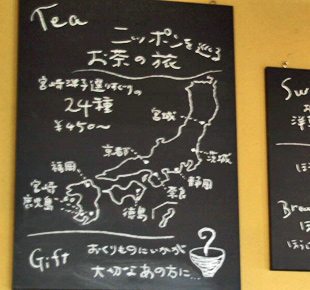 Tea
ニッポンを巡る
お茶の旅
宮崎洋子選りすぐりの
24種
¥450〜
宮城
京都
茨城
福岡
静岡
宮崎
奈良
鹿児島
徳島
Gift
おくりものにいかが
大切なあの方に…
Sw
お
洋
Brea